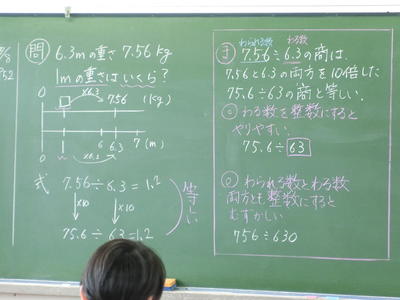 問 6.3mの重さ 7.56kg
1mの重さはいくら?
0 □ ×6.3 7.56 (kg)
0 6 6.3 7 (m)
×6.3
式 7.56÷6.3=1.2
↓×10 ↓×10
75.6÷63=1.2
等しい
わられる数 わる数
7.56÷6.3の商は、
7.56と6.3の両方を10倍した
75.6÷63の商と等しい。
◎わる数を整数にすると
やりやすい。
75.6÷63
◎わられる数とわる数
両方とも整数にすると
むずかしい
756÷630